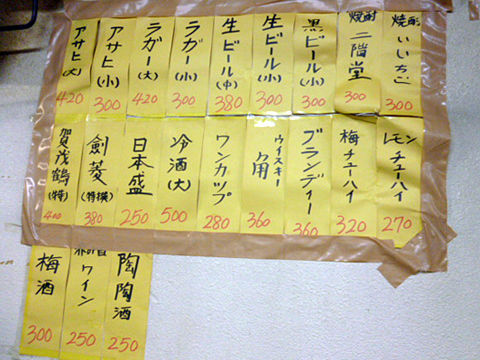 焼酎 いいちこ 300
焼酎 二階堂 300
黒ビール(小) 300
生ビール(小) 300
生ビール(中) 380
ラガー(小) 300
ラガー(大) 420
アサヒ(小) 300
アサヒ(大) 420
レモンチューハイ 270
梅チューハイ 320
ブランディー 360
ウイスキー 角 360
ワンカップ 280
冷酒(大) 500
日本盛 250
剣菱(特撰) 380
賀茂鶴(特) 400
陶陶酒 250
ワイン 250
梅酒 300